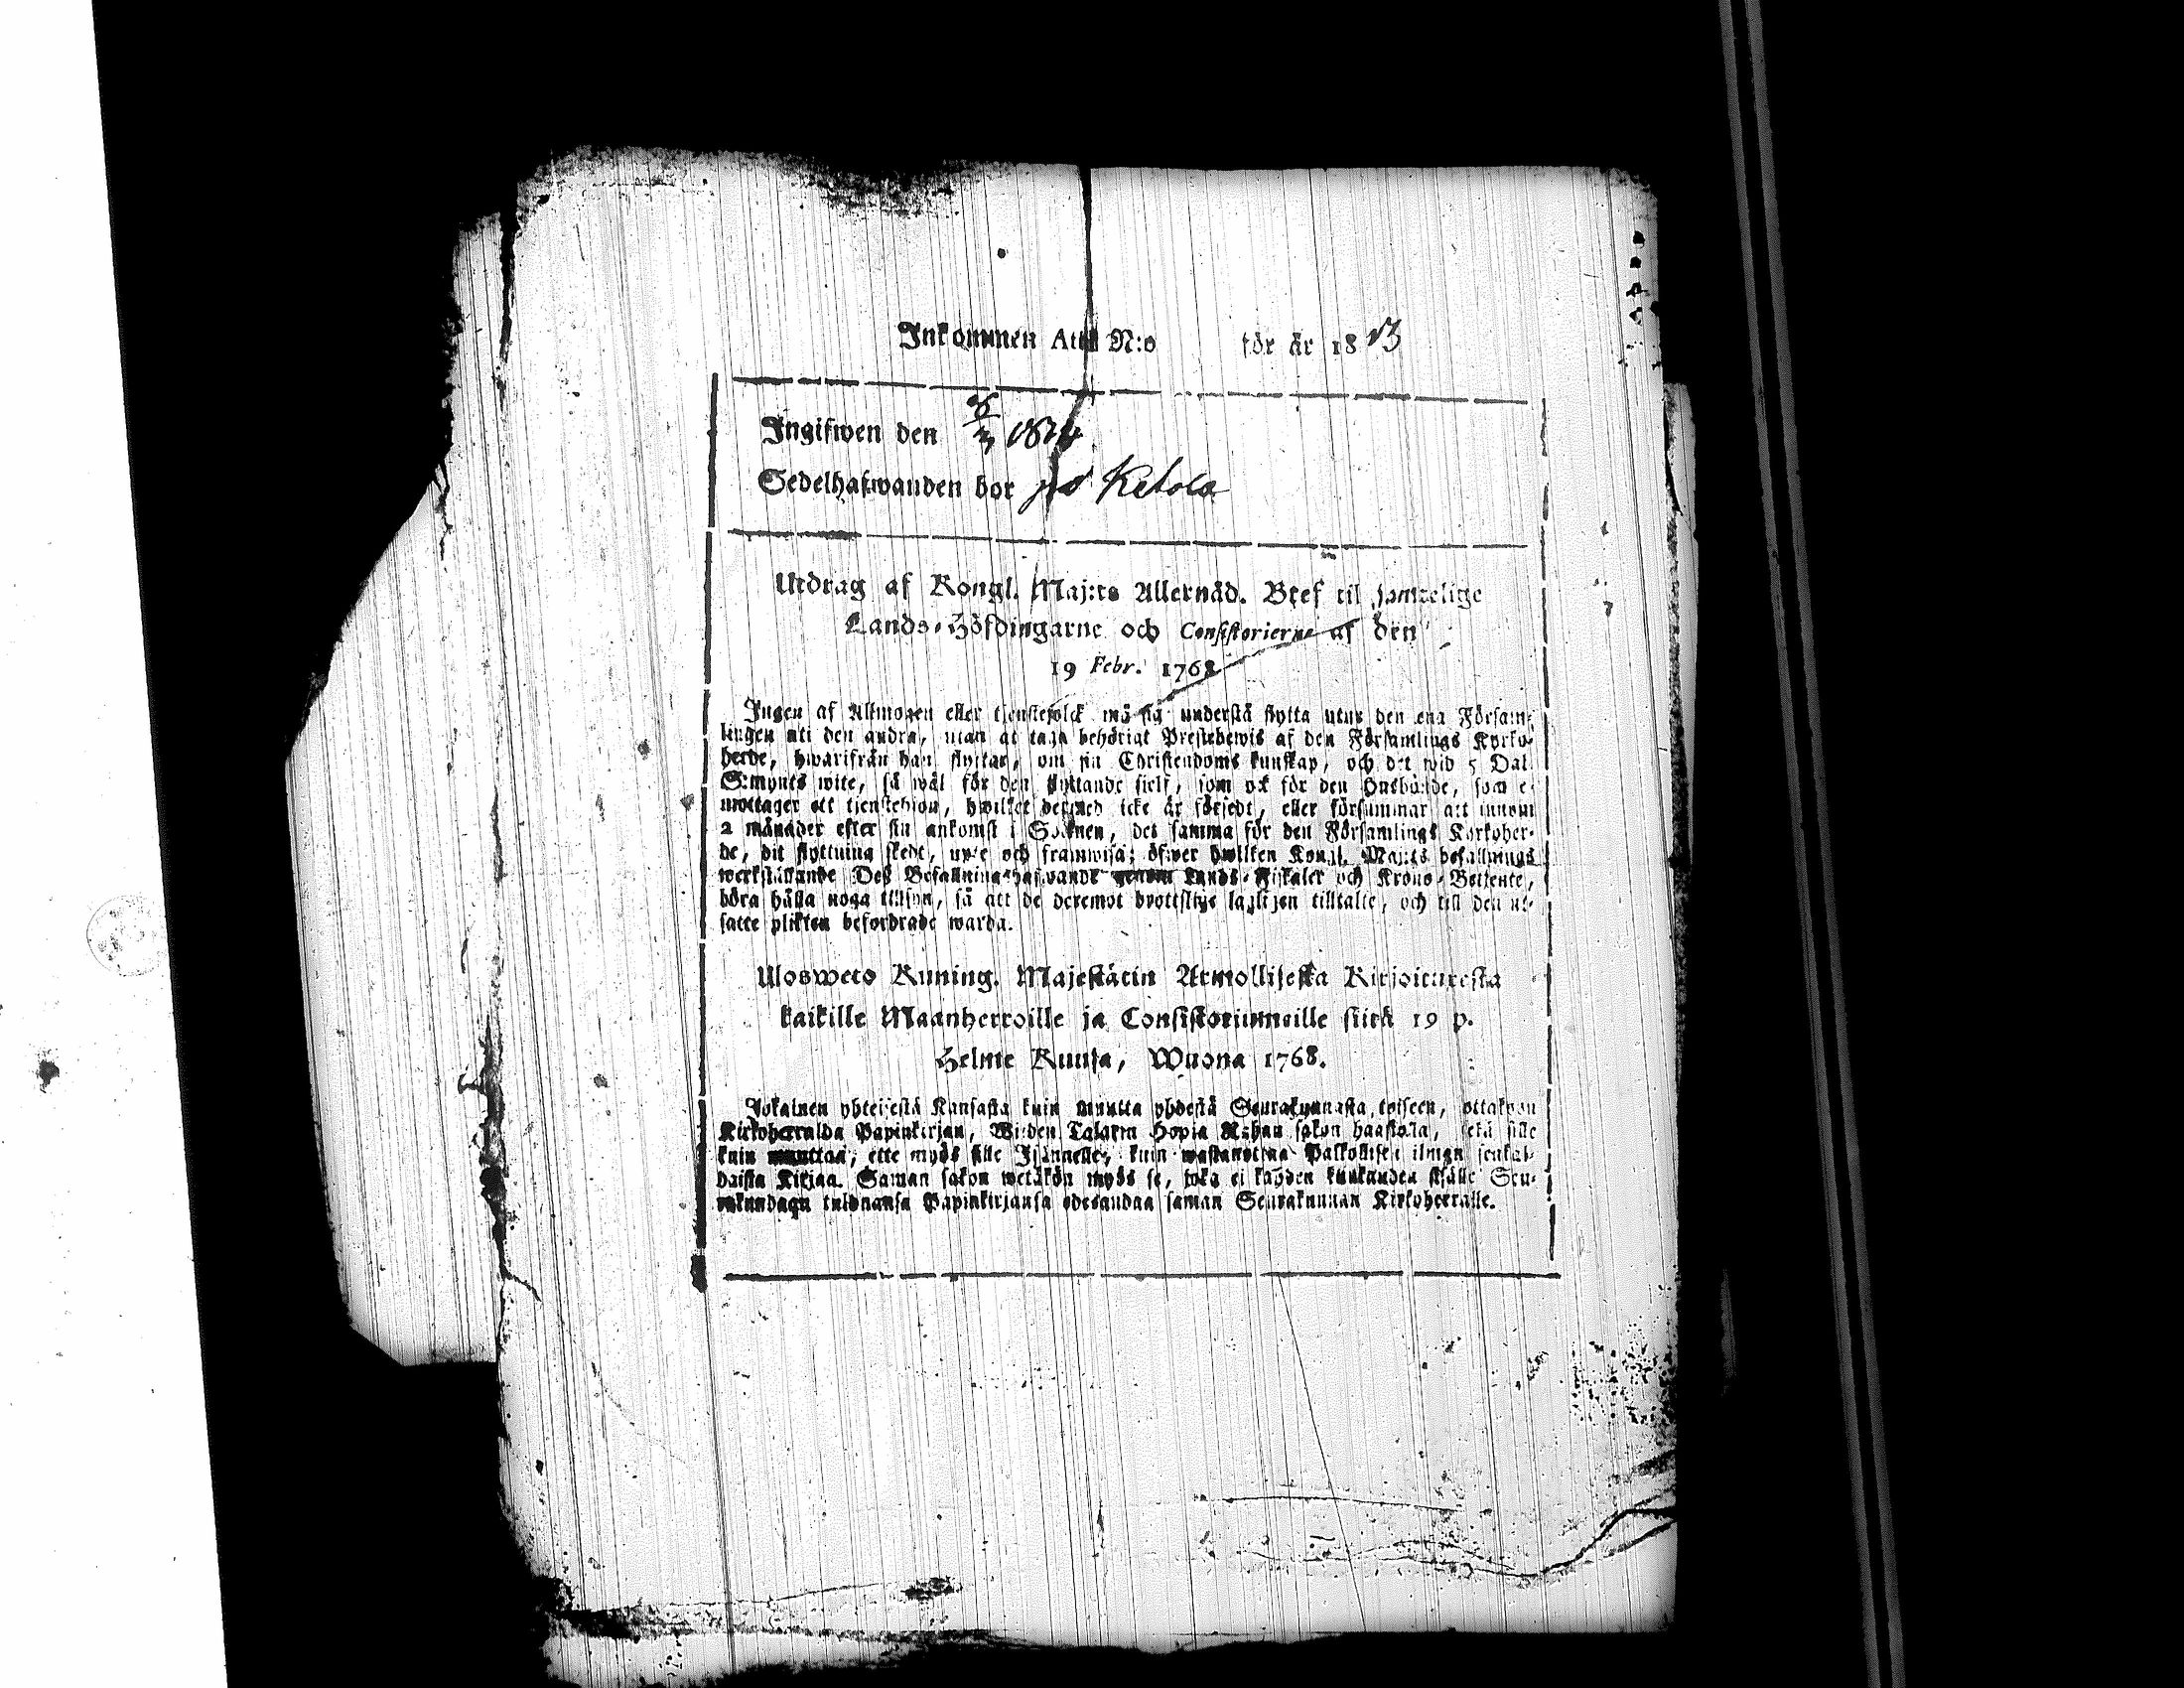 Inkommen Att. N:o för år 1813
Ingifwen den 1814
Sedelhafwanden bor på Ketola
Utdrag af Kongl. Maj:ts Allernåd. Bref til samtelige
Lands-Höfdingarne och Consistorierne af den
19 Febr. 1768
Ingen af Allmogen eller tjenstefolck må sig understå flytta utur den ena Försam-
lingen uti den andra, utan at taga behörigt Prestebewis af den Församlings Kyrko-
herde, hwarifrån han flyttar, om sin Christendoms kunskap, och det wid 5 Dal.
S:mynts wite, så wäl för den flyttande sielf, som ock för den Husbonde, som e
mottager ett tienstehion, hwilket dermed icke är försedt, eller försummar att innom
2 månader efter sin ankomst i Socknen, det samma för den Församlings Kyrkoher-
de, dit flyttning skedt, upte och framwisa; öfwer hwilken Kongl. Maj:ts befallnings
werkställande Des Befallningshafwande genom Lands-Fiskaler och Krono-Betjente,
böra hålla noga tillsyn, så att de deremot brottslige lagligen tilltalte, och till den ut-
satte plikten befordrade warda.
Ulosweto Kuning. Majestätin Armollisesta Kirjoituxesta
kaikille Maanherroille ja Consistoriumeille siitä 19 p.
Helme Kuusa, Wuona 1768.
Jokainen yhteisestä Kansasta kuin muutta yhdestä Seurakunnasta toiseen, ottakoon
Kirkoherralda Papinkirjan, Wiiden Talarin Hopia Rahan sakon haastolla, sekä sille
kuin muuttaa, ette myös sille Isännelle, kuin wastanottaa Palkollisen ilman senkal-
daista Kirjaa. Saman sakon wetäkön myös se, joka ei kahden kuukauden sisälle Seu-
rakundaan tuldnansa Papinkirjansa edesandaa saman Seurakunnan Kirkoherralle.